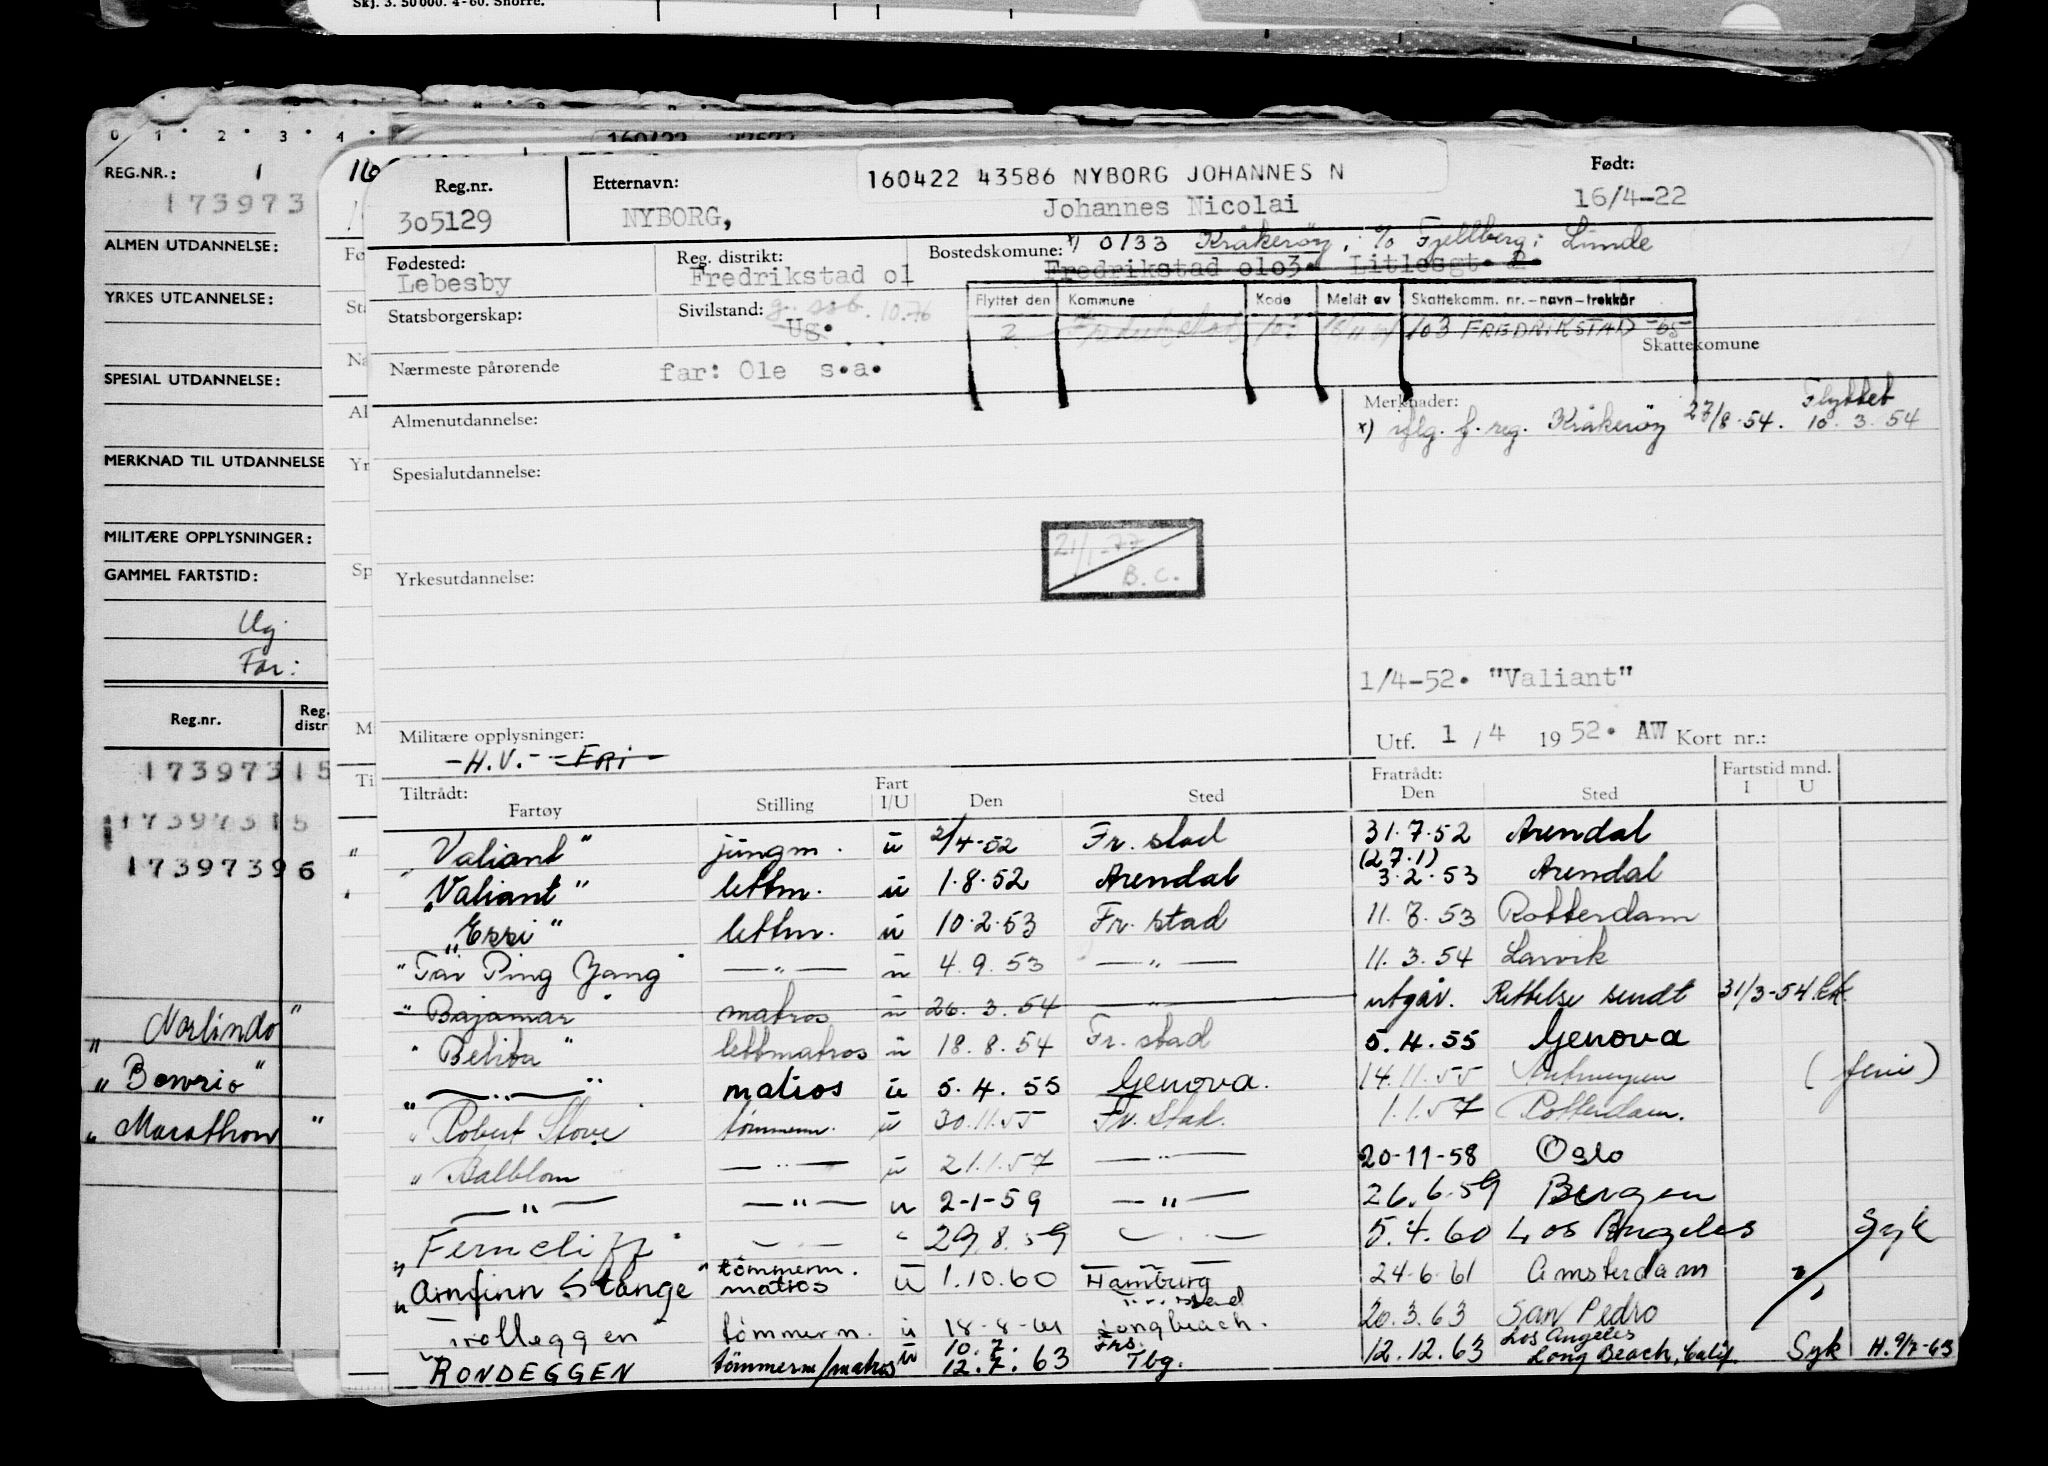 Skj. 3. 50000. 4-60. Snorre.
0 1 2 3 4
REG.NR.: 1
173973
ALMEN UTDANNELSE:
YRKES UTDANNELSE:
SPESIAL UTDANNELSE:
MERKNAD TIL UTDANNELSE
MILITÆRE OPPLYSNINGER:
GAMMEL FARTSTID:
Ug.
Far:
Reg.nr. Reg. distr
17397315
17397315
17397396
"Norlindo"
"Bowrio"
"Marathon"
160422 43586 NYBORG JOHANNES N
Reg.nr. Etternavn: Født:
305129 NYBORG, Johannes Nicolai 16/4-22
Fødested: Reg. distrikt: Bostedskomune: x) 0133 Kråkerøy, c/o Fjellberg, Lunde
Lebesby Fredrikstad 01 Fredrikstad 0103. Litlesgt. 2.
Statsborgerskap: Sivilstand: Ug. 10.76
Flyttet den Kommune Kode Meldt av Skattekomm. nr.-navn-trekkår
2 103 FREDRIKSTAD -65-
Skattekomune
Nærmeste pårørende far: Ole s.a.
Almenutdannelse: Merknader: Flyttet
x) iflg. f. reg. Kråkerøy 27/8-54. 10.3.54
Spesialutdannelse:
21/1-77
B.C.
Yrkesutdannelse:
1/4-52. "Valiant"
Militære opplysninger: Utf. 1/4 1952. AW Kort nr.:
-H.V.- -FRI-
Tiltrådt: Fartøy Stilling Fart I/U Den Sted Fratrådt: Den Sted Fartstid mnd. I U
"Valiant" jungm. u 2/4-52 Fr.stad 31.7.52 Arendal
"Valiant" lettm. u 1.8.52 Arendal (27.1) 3.2.53 Arendal
"Essi" lettm. u 10.2.53 Fr.stad 11.8.53 Rotterdam
"Tai Ping Yang" —"— u 4.9.53 —"— 11.3.54 Larvik
"Bajamar" matros u 26.3.54 —"— utgår. Rettelse sendt 31/3-54
"Belita" lettmatros u 18.8.54 Fr.stad 5.4.55 Genova
"—"—" matros u 5.4.55 Genova. 14.11.55 Antwerpen (ferie)
"Robert Stove" tømmerm. u 30.11.55 Fr.stad. 1.1.57 Rotterdam.
"Balblom —"— u 21.1.57 —"— 20-11-58 Oslo
—"— —"— u 2-1-59 —"— 26.6.59 Bergen
"Ferncliff" —"— " 29.8.59 —"— 5.4.60 Los Angeles Syk
"Arnfinn Stange" tømmerm. matros u 1.10.60 Hamburg 24-6-61 Amsterdam
"Trolleggen" tømmerm. u 18-8-61 Longbeach. 20.3.63 San Pedro
RONDEGGEN tømmerm/matros u 10.7. 12.7.63 Frs. Tbg. 12.12.63 Los Angeles Long Beach, Calif. Syk H. 9/7-63